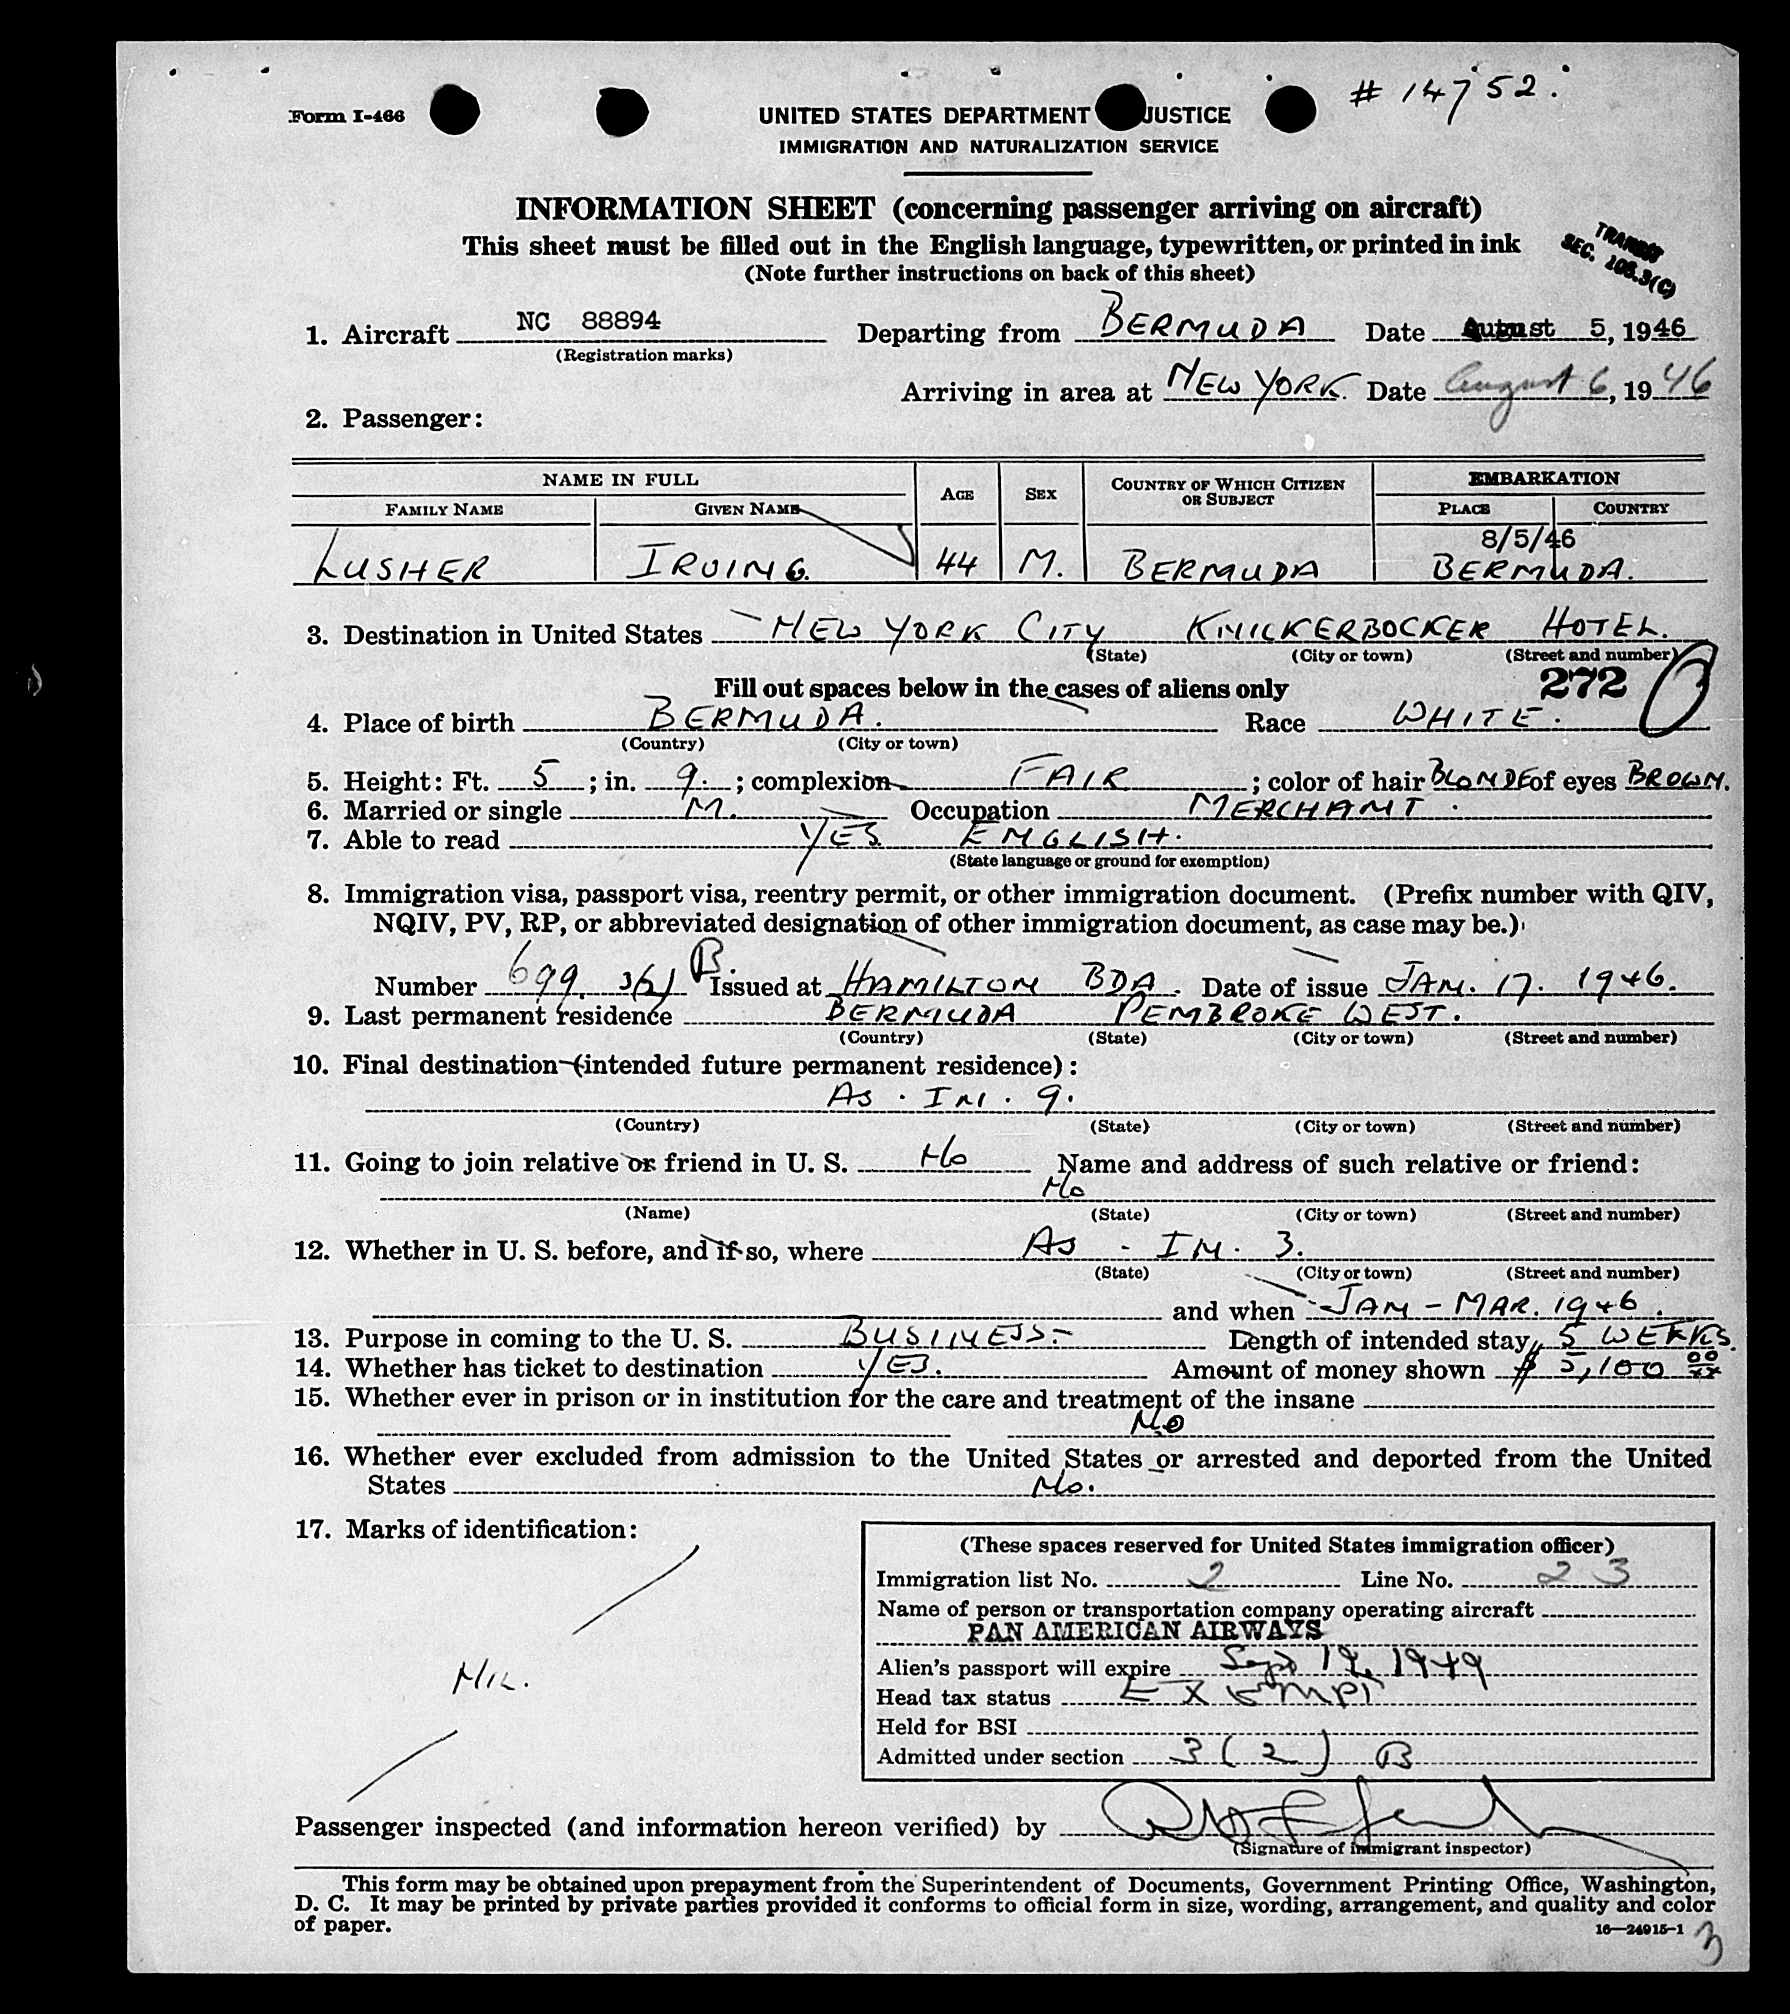 # 14752.
Form I-466
UNITED STATES DEPARTMENT JUSTICE
IMMIGRATION AND NATURALIZATION SERVICE
INFORMATION SHEET (concerning passenger arriving on aircraft)
This sheet must be filled out in the English language, typewritten, or printed in ink
(Note further instructions on back of this sheet)
TRANSIT
SEC. 108.3(C)
1. Aircraft NC 88894 Departing from BERMUDA Date August 5, 1946
(Registration marks)
Arriving in area at NEW YORK. Date August 6, 1946
2. Passenger:
NAME IN FULL AGE SEX COUNTRY OF WHICH CITIZEN OR SUBJECT EMBARKATION
FAMILY NAME GIVEN NAME PLACE COUNTRY
8/5/46
LUSHER IRVING. 44 M. BERMUDA BERMUDA.
3. Destination in United States NEW YORK CITY KNICKERBOCKER HOTEL.
(State) (City or town) (Street and number)
Fill out spaces below in the cases of aliens only 272
4. Place of birth BERMUDA. Race WHITE.
(Country) (City or town)
5. Height: Ft. 5 ; in. 9. ; complexion FAIR ; color of hair BLONDE of eyes BROWN.
6. Married or single M. Occupation MERCHANT.
7. Able to read YES. ENGLISH.
(State language or ground for exemption)
8. Immigration visa, passport visa, reentry permit, or other immigration document. (Prefix number with QIV,
NQIV, PV, RP, or abbreviated designation of other immigration document, as case may be.)
Number 699. 3(2) B. Issued at HAMILTON BDA. Date of issue JAN. 17. 1946.
9. Last permanent residence BERMUDA PEMBROKE WEST.
(Country) (State) (City or town) (Street and number)
10. Final destination (intended future permanent residence):
AS. IN. 9.
(Country) (State) (City or town) (Street and number)
11. Going to join relative or friend in U. S. No Name and address of such relative or friend:
No
(Name) (State) (City or town) (Street and number)
12. Whether in U. S. before, and if so, where AS. IN. 3.
(State) (City or town) (Street and number)
and when JAN - MAR. 1946.
13. Purpose in coming to the U. S. BUSINESS.- Length of intended stay 5 WEEKS.
14. Whether has ticket to destination YES. Amount of money shown $ 5,100 00/xx
15. Whether ever in prison or in institution for the care and treatment of the insane
NO
16. Whether ever excluded from admission to the United States or arrested and deported from the United
States No.
17. Marks of identification:
NIL.
(These spaces reserved for United States immigration officer)
Immigration list No. 2 Line No. 23
Name of person or transportation company operating aircraft
PAN AMERICAN AIRWAYS
Alien's passport will expire Sept 19, 1949
Head tax status EXEMPT
Held for BSI
Admitted under section 3(2) B
Passenger inspected (and information hereon verified) by
(Signature of immigrant inspector)
This form may be obtained upon prepayment from the Superintendent of Documents, Government Printing Office, Washington,
D. C. It may be printed by private parties provided it conforms to official form in size, wording, arrangement, and quality and color
of paper.
16—24915-1
3